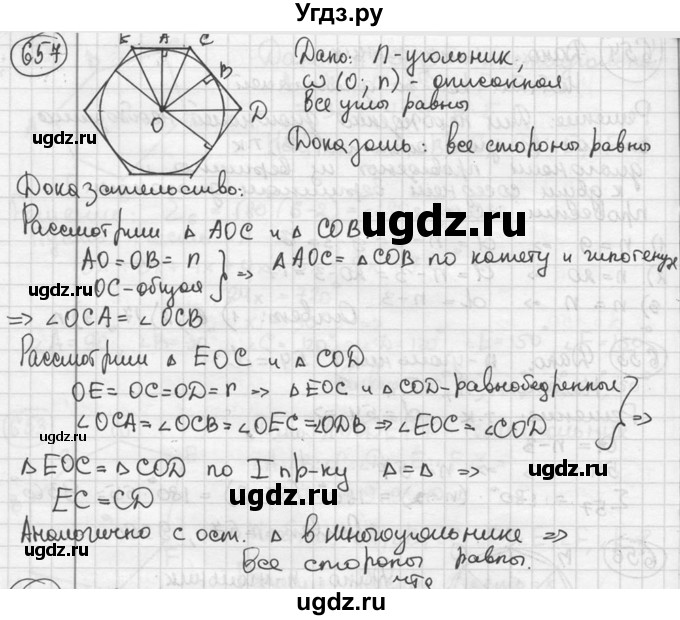 Угдз.ру
657
К A C
B
D
O
Дано: n-угольник,
ω (O; r) - описанная
все углы равны
Доказать: все стороны равны
ugdz.ru
ugdz.ru
ugdz.ru
Доказательство:
Рассмотрим △ AOC и △ COB.
ugdz.ru
AO = OB = r } => △AOC = △COB по катету и гипотенуз
OC - общая
ugdz.ru
ugdz.ru
=> ∠OCA = ∠OCB
Рассмотрим △ EOC и △ COD
OE = OC = OD = r => △EOC и △COD - равнобедренные
∠OCA = ∠OCB = ∠OEC = ∠ODB => ∠EOC = ∠COD } =>
ugdz.ru
△EOC = △COD по I пр-ку △ = △ =>
ugdz.ru
EC = CD
ugdz.ru
Аналогично с ост. △ в многоугольнике =>
ugdz.ru
Все стороны равны.
чтд
ugdz.ru
ugdz.ru